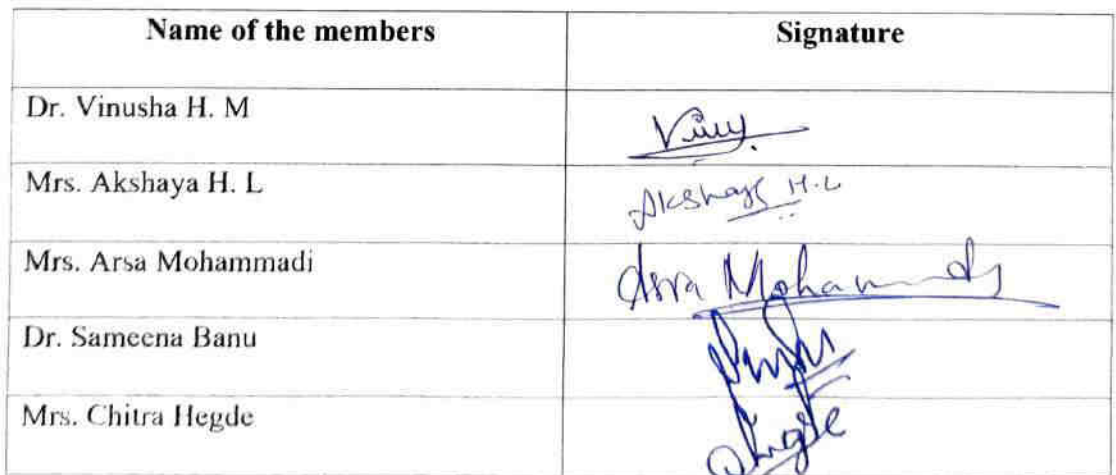 Name of the members Signature
Dr. Vinusha H. M
Mrs. Akshaya H. L Akshaya H.L
Mrs. Arsa Mohammadi Asra Mohammadi
Dr. Sameena Banu
Mrs. Chitra Hegde